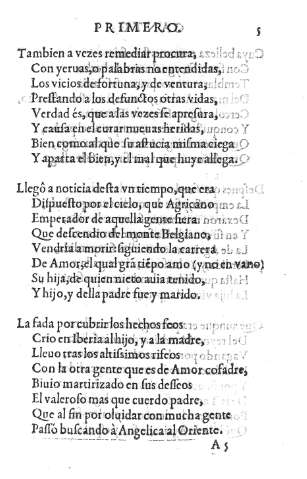 PRIMERO. 5
Tambien a vezes remediar procura,
Con yeruas, o palabras no entendidas,
Los vicios de fortuna, y de ventura,
Prestando a los defunctos otras vidas,
Verdad és, que a las vezes se apresura,
Y causa en el curar nueuas heridas,
Bien como al que su astucia misma ciega
Y aparta el bien, y el mal que huye allega.
Llegô a noticia desta vn tiempo, que era
Dispuesto por el cielo, que Agricano
Emperador de aquella gente fiera
Que descendio del monte Belgiano,
Vendria a morir siguiendo la carrera
De Amor, el qual grã tiẽpo amo (y no en vano)
Su hija, de quien nieto auia tenido,
Y hijo, y della padre fue y marido.
La fada por cubrir los hechos feos
Crio en Iberia al hijo, y a la madre,
Lleuo tras los altissimos rifeos
Con la otra gente que es de Amor cofadre,
Biuio martirizado en sus desseos
El valeroso mas que cuerdo padre,
Que al fin por oluidar con mucha gente
Passô buscando à Angelica al Oriente.
A 5